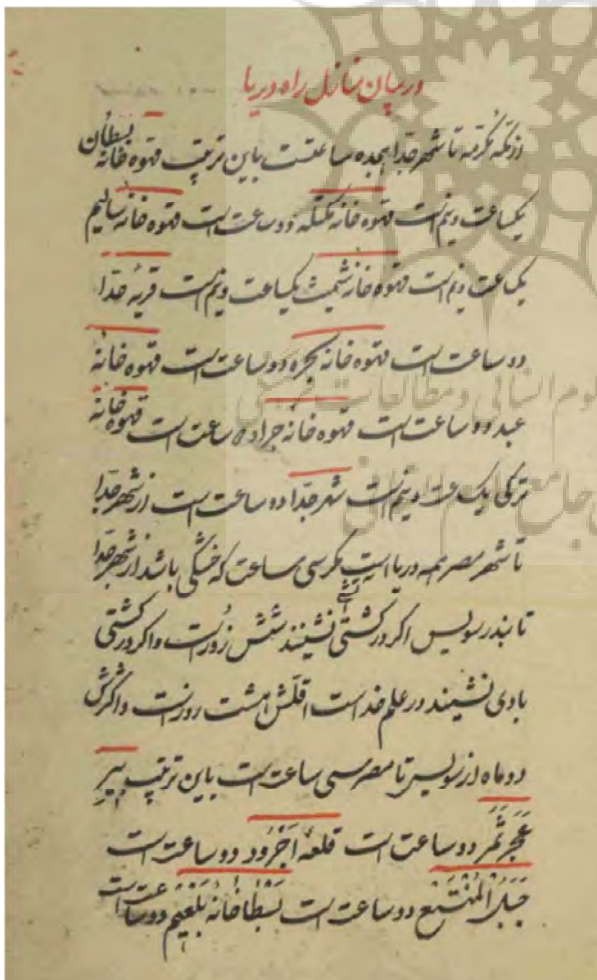 در بیان منازل راه دریا
از مکه مکرمه تا شهر جدا هجده ساعتست باین ترتیب قهوه خانه بسطان
یکساعت ونیم است قهوه خانه مکتله دوساعت است قهوه خانه سالیم
یکساعت ونیم است قهوه خانه شمیث یکساعت ونیم است قریهٔ حدا
دو ساعت است قهوه خانه بحره دوساعت است قهوه خانه
عبد دو ساعت است قهوه خانه جراده ساعت است قهوه خانه
ترکی یکساعت ونیم است شهر جدا دو ساعت است از شهر جدا
تا شهر مصر همه دریا است مکر سی ساعت که خشکی باشد از شهر جدا
تا بندر سویس اکر در کشتی نشینند شش روز است و اکر در کشتی
بادی نشینند در علم خداست اقلش هشت روز است و اکثرش
دو ماه از سویس تا مصر سی ساعت است باین ترتیب بیر
عجرثمر دو ساعت است قلعه اجرود دو ساعت است
جبل المنتبع دو ساعت است بسطاخانه بلغیم دو ساعت است
علوم انسانی و مطالعات فرهنگی
جامع علوم انسانی